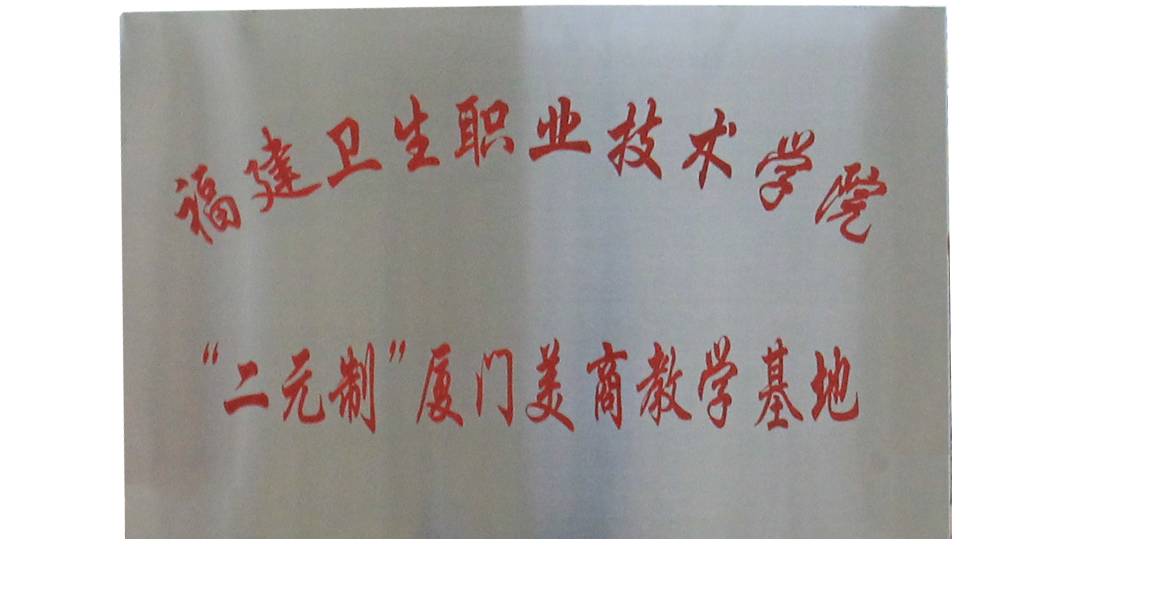 福建卫生职业技术学院
“二元制”厦门美商教学基地